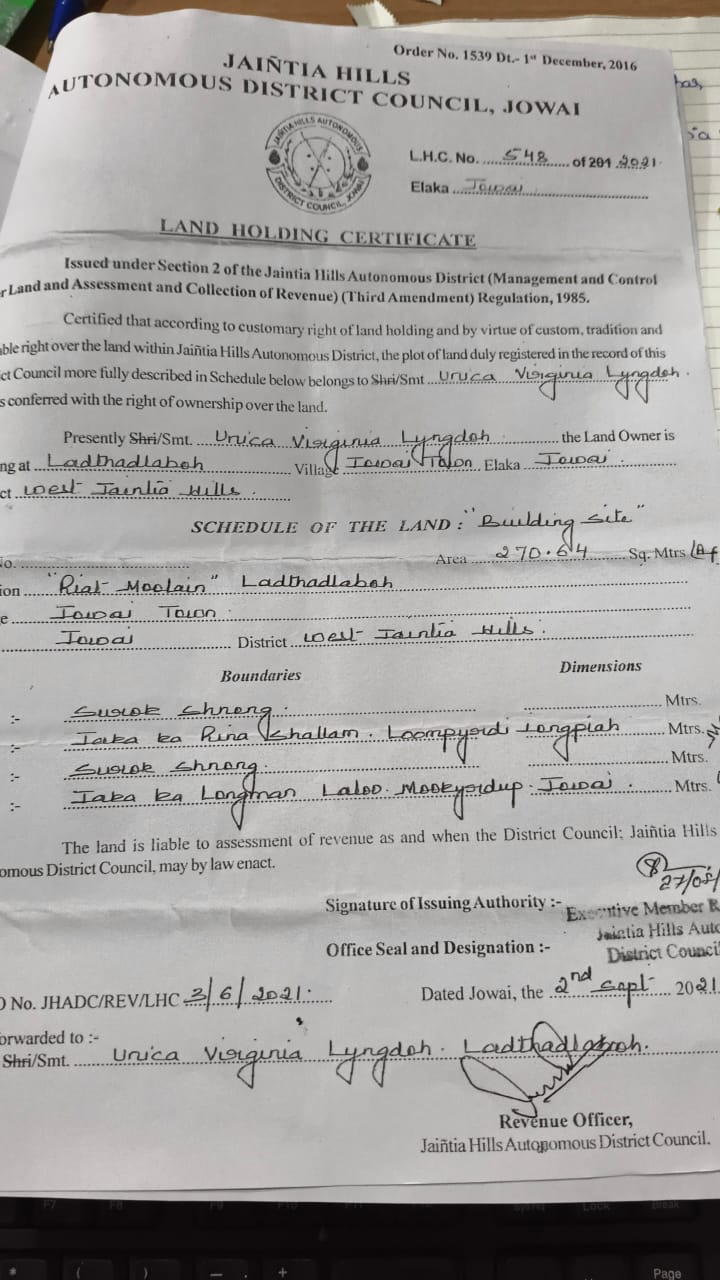 Order No. 1539 Dt.- 1st December, 2016
JAIÑTIA HILLS
AUTONOMOUS DISTRICT COUNCIL, JOWAI
JAIÑTIA HILLS AUTONOMOUS
DISTRICT COUNCIL, JOWAI
L.H.C. No. 548 of 201 2021.
Elaka Jowai
LAND HOLDING CERTIFICATE
Issued under Section 2 of the Jaintia Hills Autonomous District (Management and Control
r Land and Assessment and Collection of Revenue) (Third Amendment) Regulation, 1985.
Certified that according to customary right of land holding and by virtue of custom, tradition and
able right over the land within Jaiñtia Hills Autonomous District, the plot of land duly registered in the record of this
ct Council more fully described in Schedule below belongs to Shri/Smt Urica Virginia Lyngdoh.
s conferred with the right of ownership over the land.
Presently Shri/Smt. Urica Virginia Lyngdoh the Land Owner is
ng at Ladthadlaboh Village Jowai Town Elaka Jowai.
ct West Jaintia Hills.
SCHEDULE OF THE LAND : "Building Site"
No. Area 270.64 Sq. Mtrs
ion "Riat-Moolain" Ladthadlaboh
e Jowai Town.
Jowai District West Jaintia Hills.
Boundaries Dimensions
:- Surok Shnong. Mtrs.
:- Jaka ka Rina Shallam. Loompyrdi Iongpiah Mtrs.
:- Surok Shnong. Mtrs.
:- Jaka ka Longman Laloo. Mookyrdup. Jowai. Mtrs.
The land is liable to assessment of revenue as and when the District Council; Jaiñtia Hills
omous District Council, may by law enact.
27/08/
Signature of Issuing Authority :-
Executive Member R
Jaintia Hills Auto
Office Seal and Designation :- District Council
O No. JHADC/REV/LHC 3/6/2021. Dated Jowai, the 2nd Sept 2021
orwarded to :-
Shri/Smt. Urica Virginia Lyngdoh. Ladthadlaboh.
Revenue Officer,
Jaiñtia Hills Autonomous District Council.
F7 F8 F9 F10 F11
Lock Break
* ( ) — +
Page